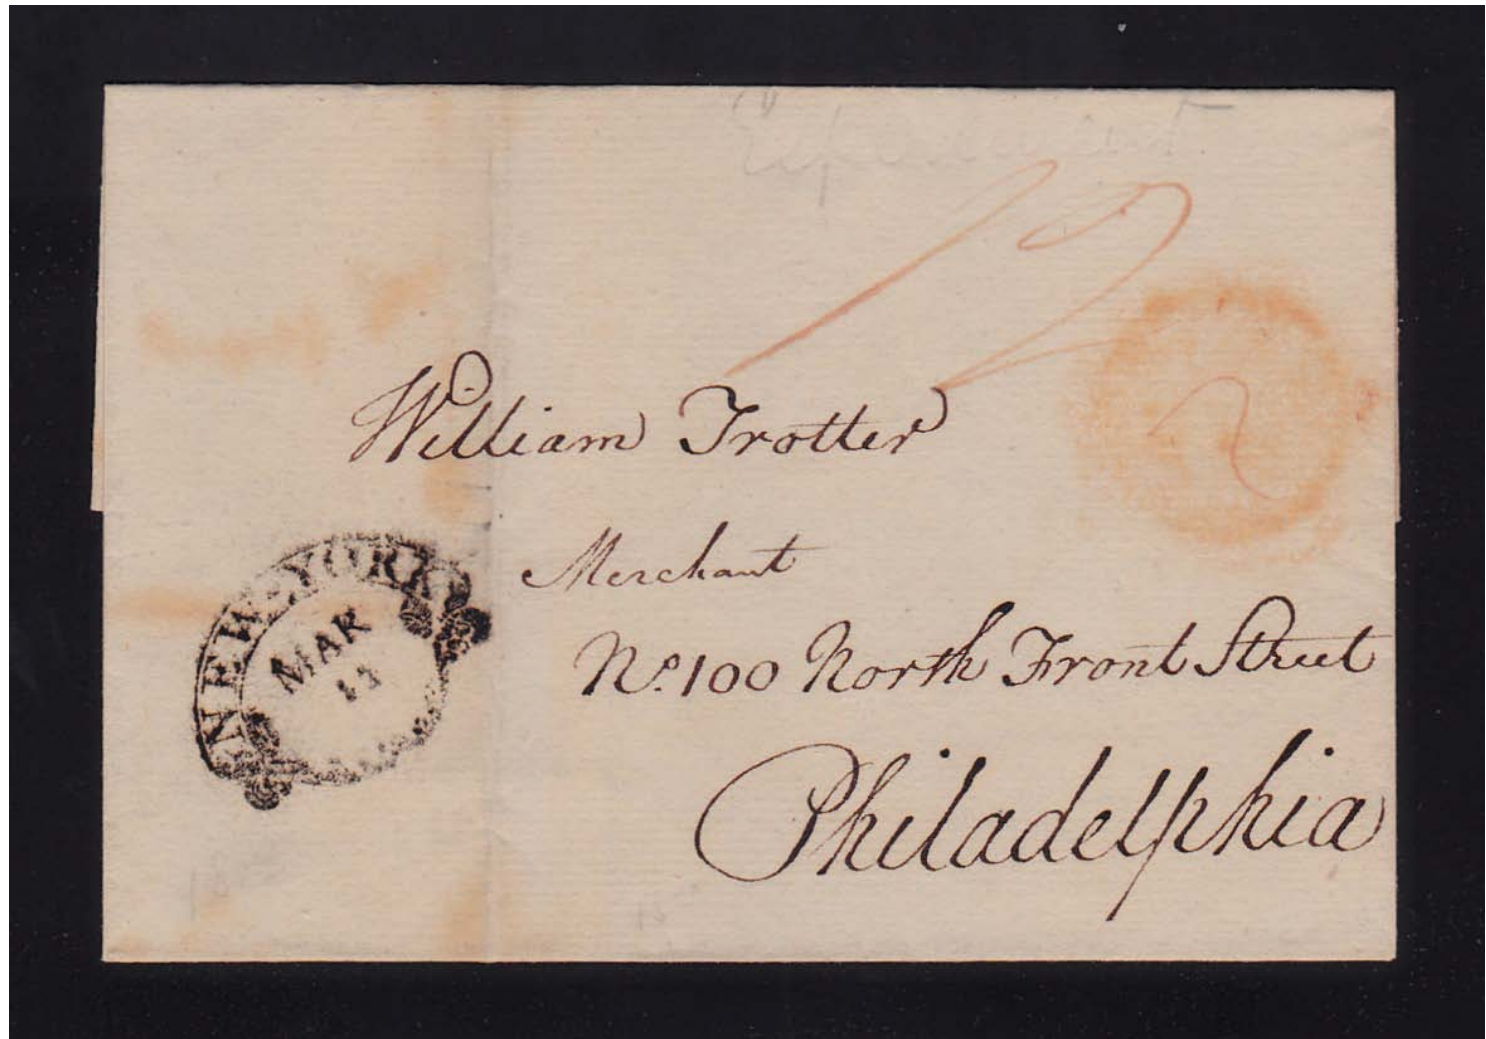 12
2
William Trotter
Merchant
No. 100 North Front Street
Philadelphia
NEW-YORK
MAR